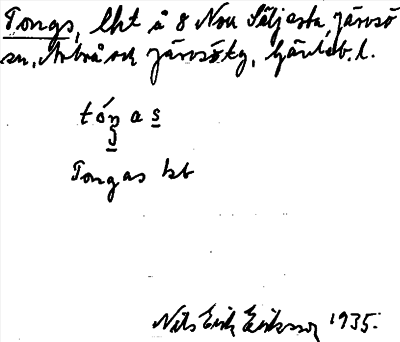 Tongs, lht å 8 Nou Säljesta, Järvsö
sn, Arbrå och Järvsö tg, Gävleb. l.
tóŋas
Tongas hb
Nils Erik Eriksson 1935.